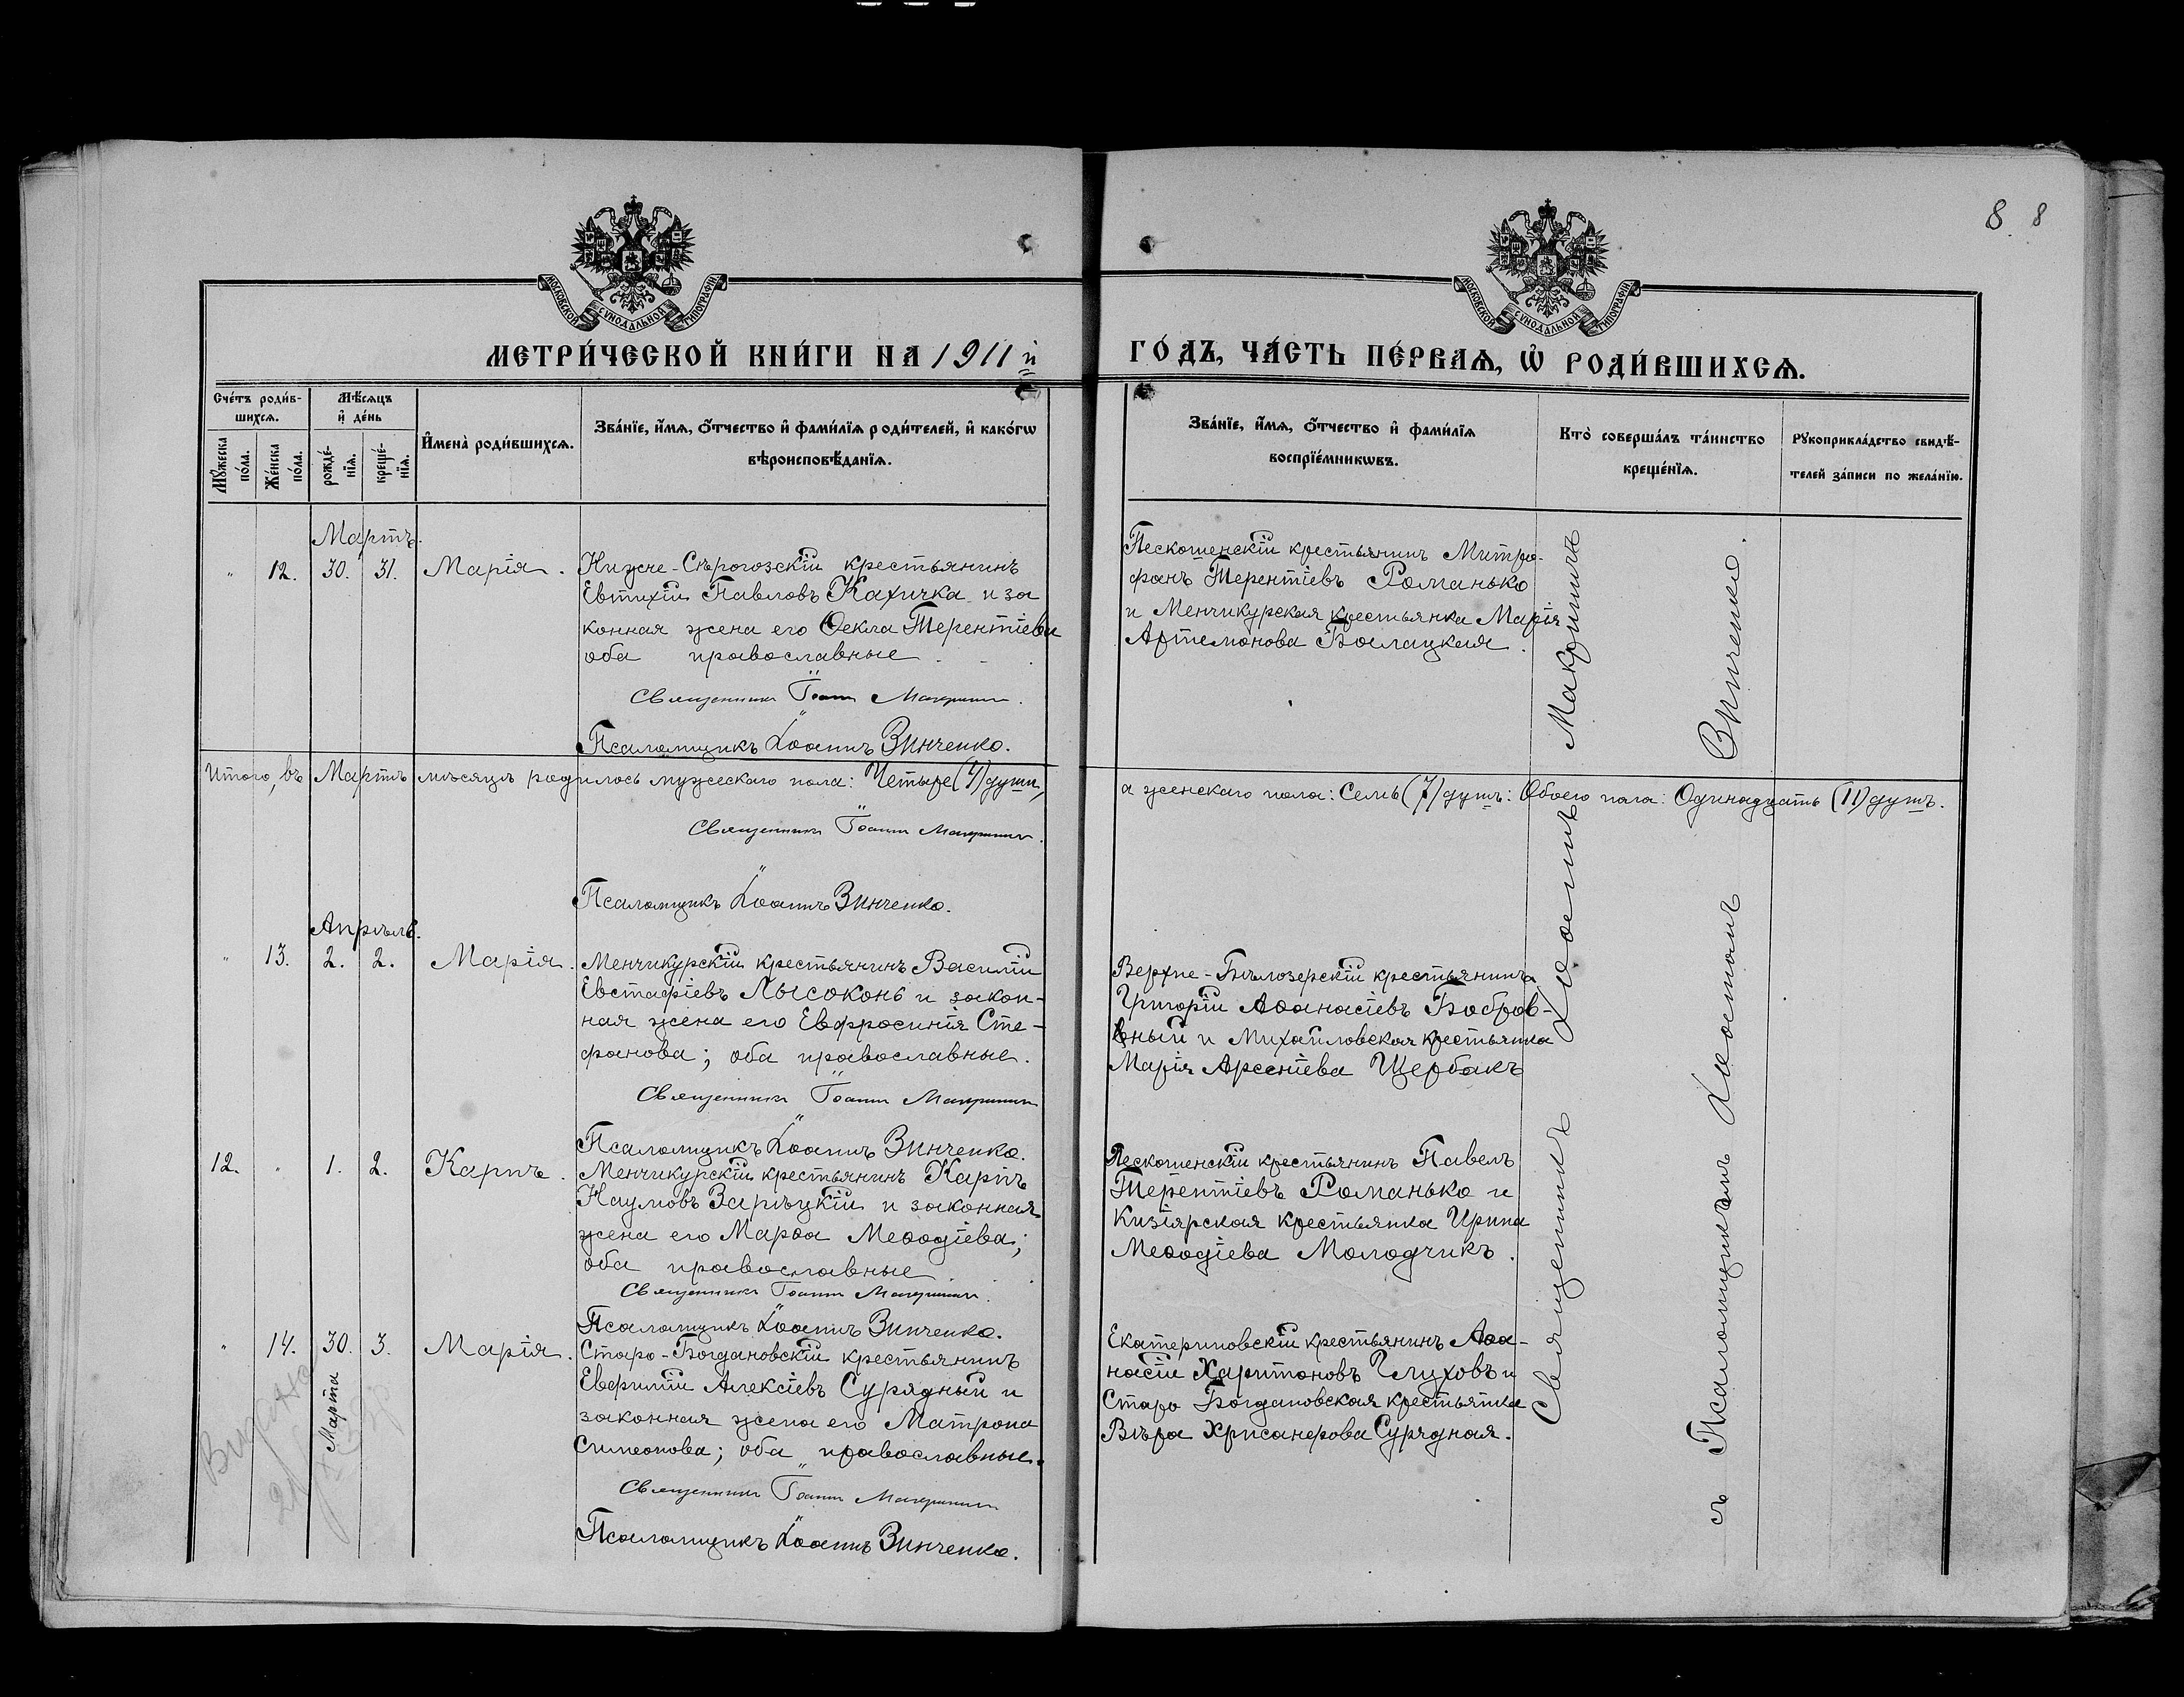 8 8
МОСКОВСКОЙ СѴНОДАЛЬНОЙ ТИПОГРАФІИ
МОСКОВСКОЙ СѴНОДАЛЬНОЙ ТИПОГРАФІИ
МЕТРИ́ЧЕСКОЙ КНИ́ГИ НА 1911 й
ГО́ДЪ, ЧА́СТЬ ПЕ́РВАѦ, Ѡ҆ РОДИ́ВШИХСѦ.
Сче́тъ роди́в-
шихсѧ.
Мꙋ́жеска по́ла.
Же́нска по́ла.
Мѣ́сѧцъ
и҆ де́нь
рожде́-
нїѧ.
креще́-
нїѧ.
И҆мена̀ роди́вшихсѧ.
Зва́нїе, и҆́мѧ, ѻ҆́тчество и҆ фами́лїѧ роди́телей, и҆ како́гѡ
вѣроисповѣ́данїѧ.
Зва́нїе, и҆́мѧ, ѻ҆́тчество и҆ фами́лїѧ
воспрїе́мникѡвъ.
Кто̀ соверша́лъ та́инство
креще́нїѧ.
Рꙋкоприкла́дство свидѣ́-
телей за́писи по жела́нїю.
Мартъ.
" 12. 30. 31. Марія.
Нижне-Сѣрогозскій крестьянинъ
Евтихій Павловъ Кахичка и за
конная жена его Ѳекла Терентіева
оба православные
Священникъ Іоаннъ Макриничъ.
Псаломщикъ Іоаннъ Винченко.
Пескошенскій крестьянинъ Митро-
фанъ Терентіевъ Романько
и Менчикурская крестьянка Марія
Артемонова Боглацкая.
Итого, въ Мартѣ мѣсяцѣ родилось мужескаго пола: Четыре (4) души,
а женскаго пола: Семь (7) душъ: Обоего пола: Одинадцать (11) душъ.
Священникъ Іоаннъ Макриничъ.
Псаломщикъ Іоаннъ Винченко.
Апрѣль.
" 13. 2. 2. Марія.
Менчикурскій крестьянинъ Василій
Евстафіевъ Лысоконь и закон-
ная жена его Евфросинія Сте-
фанова; оба православные.
Священникъ Іоаннъ Макриничъ
Псаломщикъ Іоаннъ Винченко.
Верхне-Бѣлозерскій крестьянинъ
Григорій Аѳанасіевъ Бобров-
ный и Михайловская крестьянка
Марія Арсеніева Щербакъ
12. " 1. 2. Карпъ.
Менчикурскій крестьянинъ Карпъ
Наумовъ Зарѣцкій и законная
жена его Марѳа Меѳодіева;
оба православные
Священникъ Іоаннъ Макриничъ.
Псаломщикъ Іоаннъ Винченко.
Пескошенскій крестьянинъ Павелъ
Терентіевъ Романько и
Кизіярская крестьянка Ирина
Меѳодіева Молодчикъ.
" 14. 30. Марта 3. Марія.
Старо-Богдановскій крестьянинъ
Евфимій Алексіевъ Сурядный и
законная жена его Матрона
Симеонова; оба православные.
Священникъ Іоаннъ Макриничъ
Псаломщикъ Іоаннъ Винченко.
Екатериновскій крестьянинъ Аѳа-
насій Харитоновъ Глуховъ и
Старо Богдановская крестьянка
Вѣра Хрисанфова Сурядная.
Священникъ Іоаннъ Макриничъ
съ Псаломщикомъ Іоанномъ Винченко.